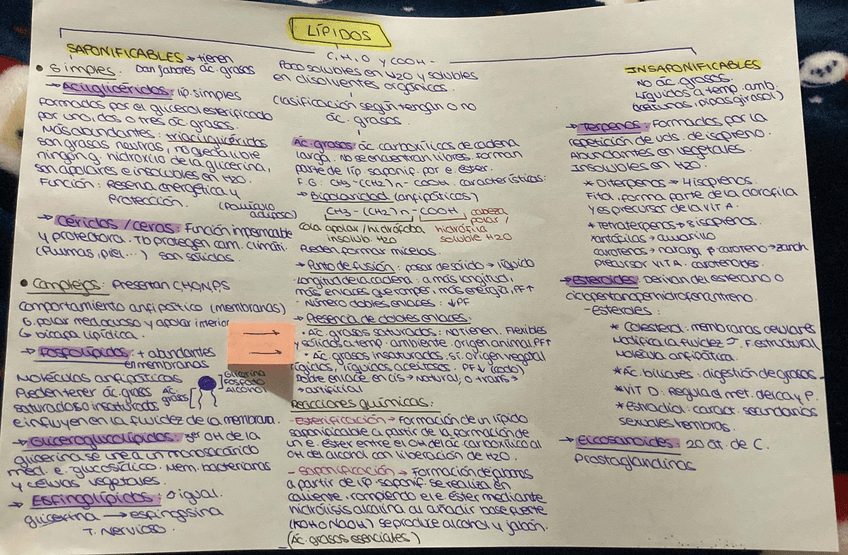 LÍPIDOS
SAPONIFICABLES → tienen
Dan jabones ác. grasos
• Simples:
→ Acilglicéridos: líp. simples
formados por el glicerol esterificado
por uno, dos o tres ác. grasos.
Más abundantes: triacilglicéridos
son grasas neutras, no queda libre
ningún g. hidroxilo de la glicerina,
son apolares e insolubles en H2O.
Función: Reserva energética y
protección. (Panículo
adiposo)
→ Céridos/ceras: Función impermeable
y protectora. Tb protegen cam. climáti.
(Plumas, piel...) son sólidas.
• Complejos: Presentan CHONPS
comportamiento anfipático (membranas)
G. polar medio acuoso y apolar interior
↳ bicapa lipídica.
→ Fosfolípidos: + abundantes
en membranas
Moléculas anfipáticas
Pueden tener ác. grasos
saturados o insaturados
e influyen en la fluidez de la membrana.
Glicerina
Fosfato
Alcohol
Ác
grasos
→ Gliceroglucolípidos: 3er OH de la
glicerina se une a un monosacárido
med. e. glucosídico. Mem. bacterianas
y células vegetales.
→ Esfingolípidos: igual.
glicerina → esfingosina
T. Nervioso.
C, H, O y COOH-
Poco solubles en H2O y solubles
en disolventes orgánicos.
Clasificación según tengan o no
ác. grasos.
Ác. grasos: ác carboxílicos de cadena
larga. No se encuentran libres. forman
parte de líp saponif. por e. éster.
F.G. CH3-(CH2)n-COOH. características:
→ Bipolaridad (anfipáticos)
CH3-(CH2)n-COOH cabeza
polar /
cola apolar/hidrófoba hidrófila
insolub. H2O soluble H2O
Pueden formar micelas.
→ Punto de fusión: pasar de sólido → líquido
Longitud de la cadena: a más longitud,
más enlaces que romper, más energía, PF↑
- Número dobles enlaces: ↓PF
→ Presencia de dobles enlaces:
• Ác. grasos saturados: no tienen. Flexibles
y sólidos a temp. ambiente. origen animal PF↑
• Ác grasos insaturados. sí. origen vegetal
rígidos, líquidos aceitosos. PF↓ (codo)
Doble enlace en cis → natural, o trans →
→ artificial
Reacciones químicas:
- Esterificación → Formación de un lípido
saponificable a partir de la formación de
un e. éster entre el OH del ác carboxílico al
OH del alcohol con liberación de H2O.
- Saponificación → Formación de jabones
a partir de líp. saponif. se realiza en
caliente, rompiendo el e éster mediante
hidrólisis alcalina al añadir base fuerte
(KOH o NaOH) se produce alcohol y jabón.
(Ác. grasos esenciales)
INSAPONIFICABLES
No ác. grasos.
Líquidos a temp. amb.
(aceitunas, pipas girasol)
→ Terpenos: Formados por la
repetición de uds. de isopreno.
Abundantes en vegetales.
Insolubles en H2O.
* Diterpenos → 4 isoprenos
Fitol, forma parte de la clorofila
y es precursor de la vit A.
* Tetraterpenos → 8 isoprenos
xantófilas → amarillo
carotenos → naranj. β-caroteno → zanah
Precursor VIT A. carotenoides.
→ Esteroides: Derivan del esterano o
ciclopentanoperhidrofenantreno.
- esteroles:
* Colesterol: membranas celulares
Modifica la fluidez y F. estructural
Molécula anfipática.
* Ác. biliares: digestión de grasas.
* VIT D. Regula el met. de Ca y P.
* Estradiol: caract. secundarios
sexuales hembras.
→ Eicosanoides: 20 at. de C.
Prostaglandinas